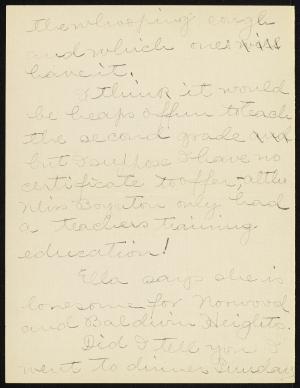 the whooping cough
and which ones will
have it.
I think it would
be heaps o' fun to teach
the second grade
but I suppose I have no
certificate to offer, altho
Miss Boynton only had
a teachers training
education!
Ella says she is
lonesome for Norwood
and Baldwin Heights.
Did I tell you I
went to dinner Sunday